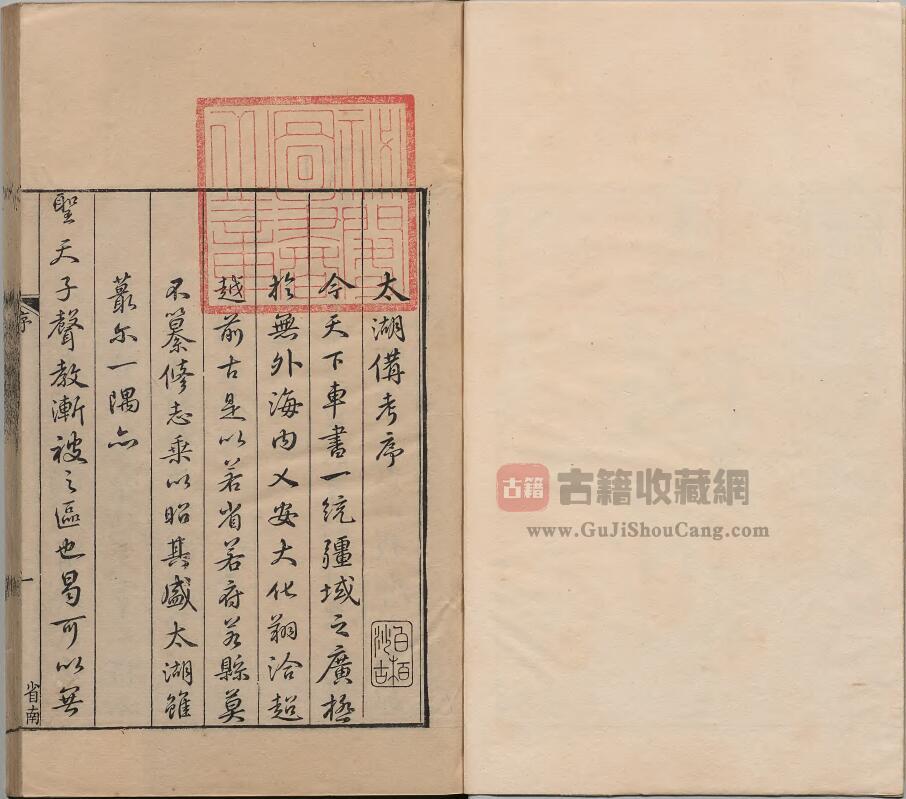 太湖備考序
今天下車書一統疆域之廣極
於無外海內乂安大化翔洽超
越前古是以若省若府若縣莫
不纂修志乘以昭其盛太湖雖
蕞尔一隅亦
聖天子聲教漸被之區也曷可以無
序
一
省南
秘閣圖書之章
古籍
古籍收藏網
www.GuJiShouCang.com